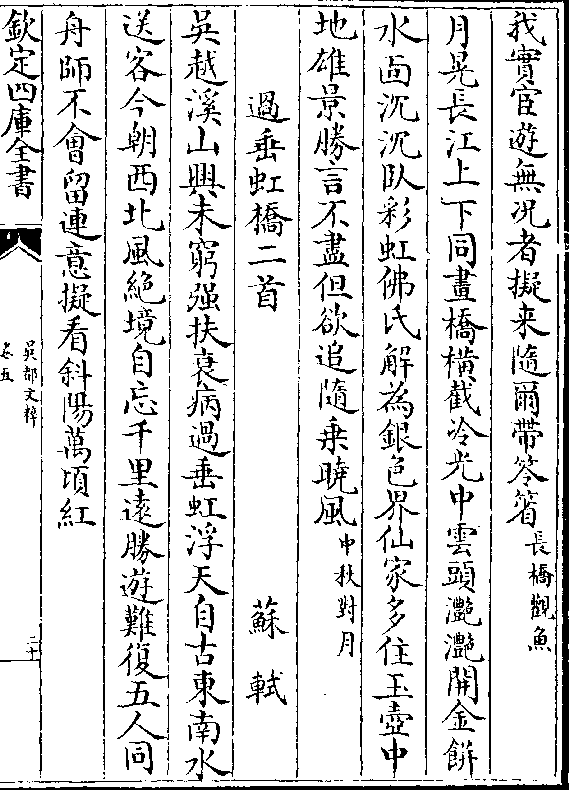 我實宦遊無况者擬来隨爾帶笭箵長橋觀魚
月晃長江上下同畫橋橫截冷光中雲頭灩灩開金餅
水面沉沉臥彩虹佛氏解為銀色界仙家多住玉壺中
地雄景勝言不盡但欲追隨乗曉風中秋對月
過垂虹橋二首 蘇軾
吳越溪山興未窮强扶衰病過垂虹浮天自古東南水
送客今朝西北風絶境自忘千里遠勝遊難復五人同
舟師不會留連意擬看斜陽萬頃紅
欽定四庫全書 吳都文粹 卷五 二十